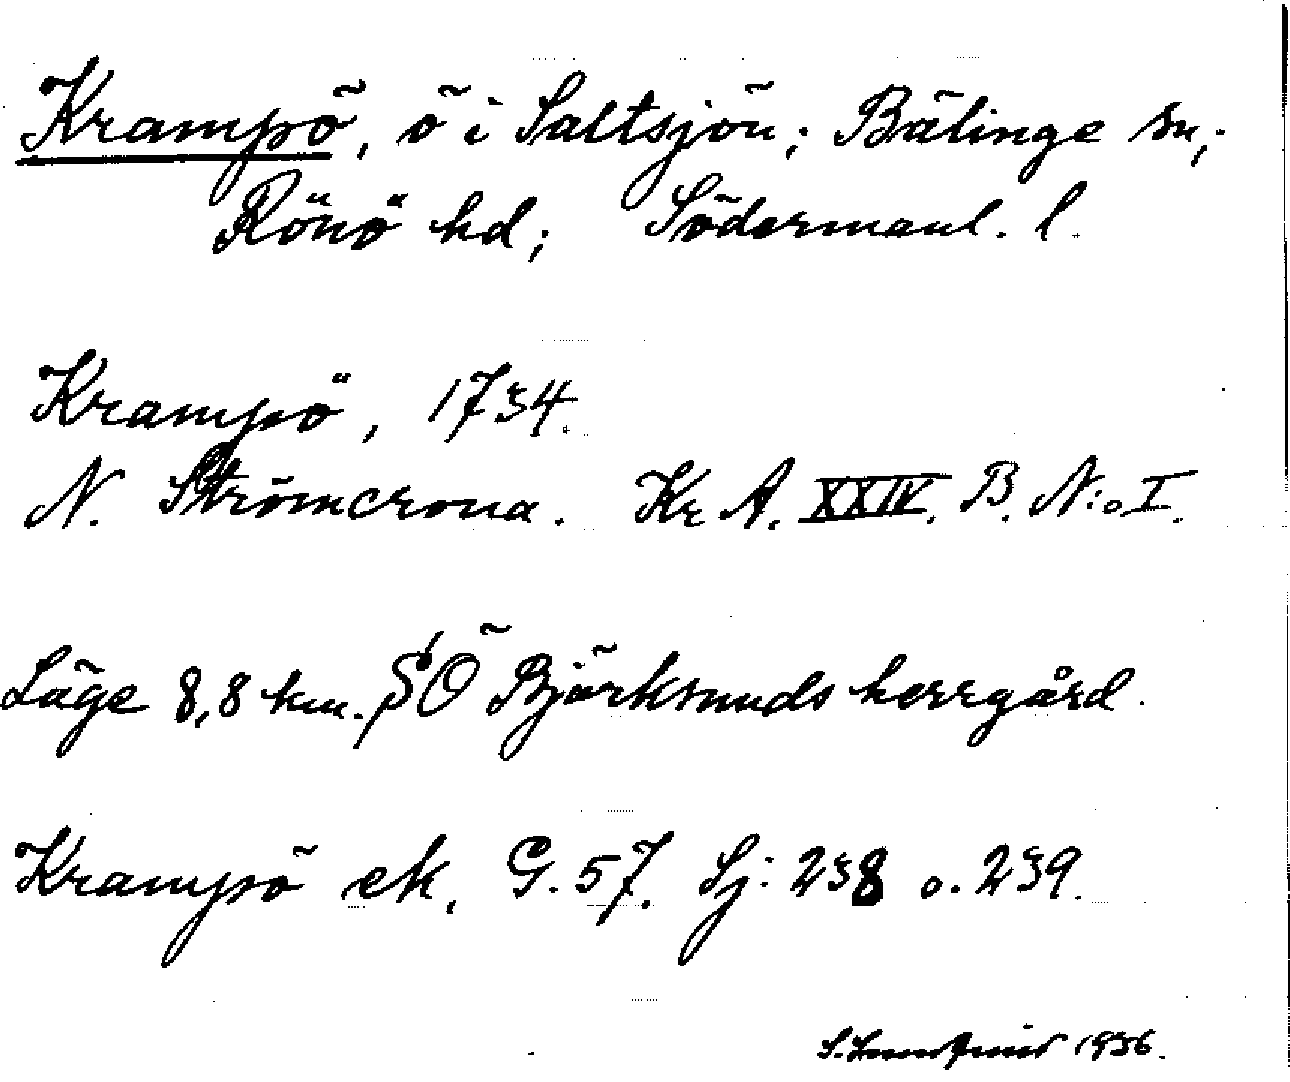 Krampö, ö i Saltsjön; Bälinge sn,;
Rönö hd; Södermanl. l.
Krampö, 1734.
N. Strömcrona. Kr. A. XXIV. B. N:o I.
Läge 8,8 km. SÖ Björksunds herrgård.
Krampö ek. G. 57. Sj: 238 o. 239.
S. 1936.